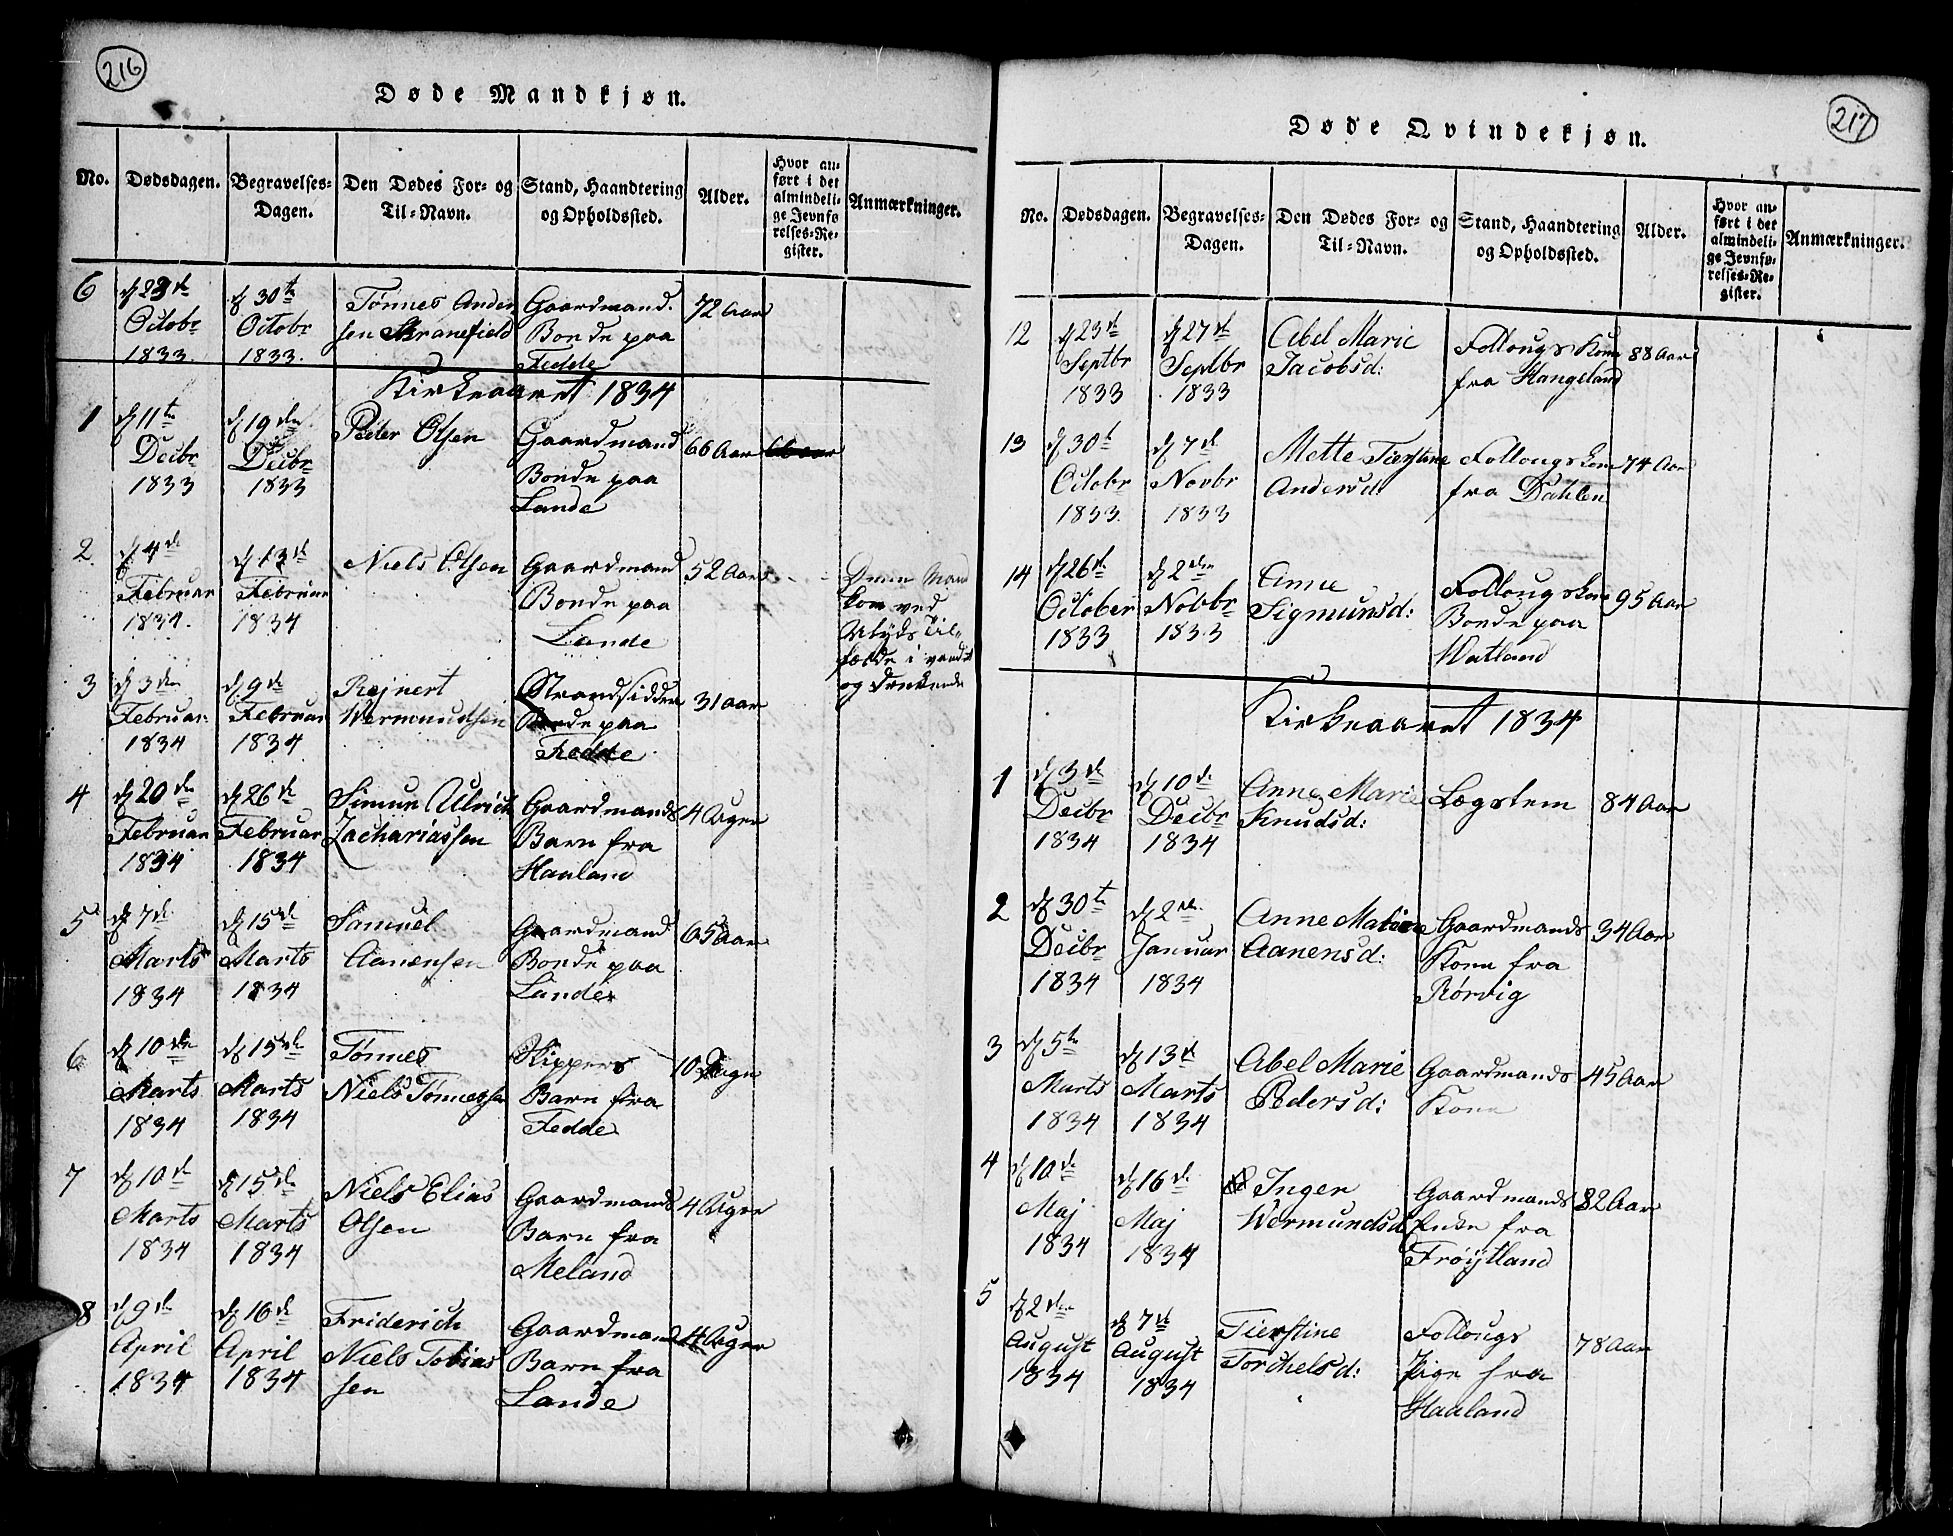 216
Døde Mandkjøn.
No.
Dødsdagen.
Begravelses-
Dagen.
Den Dødes For- og
Til-Navn.
Stand, Haandtering
og Opholdssted.
Alder.
Hvor an-
ført i det
almindeli-
ge Jevnfø
relses-Re-
gister.
Anmærkninger.
6
d 23de
Octobr
1833.
d 30te
Octobr
1833.
Tønnes Ander
sen Stranefield
Gaardmand.
Bonde paa
Fedde
72 Aar
Kirkeaaret 1834
1
d 11te
Decbr
1833
d 19de
Decbr
1833
Peter Olsen
Gaardmand
Bonde paa
Lande
66 Aar
66 aar
2.
d 4de
Februar
1834.
d 13de
Februar
1834
Niels Olsen
Gaardmand
Bonde paa
Lande
52 Aar
Denne Mand
kom ved
Ulyds Til-
fælde i vandet
og druknede
3
d 3de
Februar
1834
d 9de
Februar
1834
Rejnert
Wermundsen
Strandsidder
Bonde paa
Fedde
31 aar
4
d 20de
Februar
1834
d 26de
Februar
1834
Simun Ulrich
Zachariassen
Gaardmands
Barn fra
Haaland
4 Uger
5
d 7de
Marts
1834
d 15de
Marts
1834
Samuel
Aanensen
Gaardmand
Bonde paa
Lande
65 Aar
6
d 10de
Marts
1834
d 15de
Marts
1834
Tønnes
Niels Tønnessen
Skippers
Barn fra
Fedde
10 Dage
7
d 10de
Marts
1834
d 15de
Marts
1834
Niels Elias
Olsen
Gaardmands
Barn fra
Meland
4 Uger
8
d 9de
April
1834
d 16de
April
1834
Friderich
Niels Tobias
sen
Gaardmands
Barn fra
Lande
4 Uger
217
Døde Qvindekjøn.
No.
Dødsdagen.
Begravelses-
Dagen.
Den Dødes For- og
Til-Navn.
Stand, Haandtering
og Opholdssted.
Alder.
Hvor an-
ført i det
almindeli-
ge Jevnfø-
relses-Re-
gister.
Anmærkninger.
12
d 23de
Septbr
1833
d 27de
Septbr
1833
Abel Marie
Jacobsd:
Follougs Kone
fra Hangeland
88 Aar
13
d 30te
Octobr
1833.
d 7de
Novbr
1833
Mette Tierstine
Andersd:
Follougskone
fra Dahlen
74 Aar
14
d 26de
October
1833
d 2den
Novbr
1833
Anne
Sigmunsd:
Follougskone
Bonde paa
Watland
95 Aar
Kirkeaaret 1834
1
d 3de
Decbr
1834
d 10de
Decbr
1834
Anne Marie
Knudsd:
Lægslem
84 Aar
2
d 30te
Decbr
1834
d 2de
Januar
1834
Anne Malene
Aanensd:
Gaardmands
Kone fra
Rørvig
34 Aar
3
d 5te
Marts
1834
d 13de
Marts
1834
Abel Marie
Pedersd:
Gaardmands
Kone
45 Aar
4
d 10de
Maj
1834
d 16de
Maj
1834
Inger
Wermundsd
Gaardmands
Enke fra
Frøytland
82 Aar
5
d 2den
August
1834
d 7de
August
1834
Tierstine
Torchelsd:
Follougs
Pige fra
Haaland
78 Aar